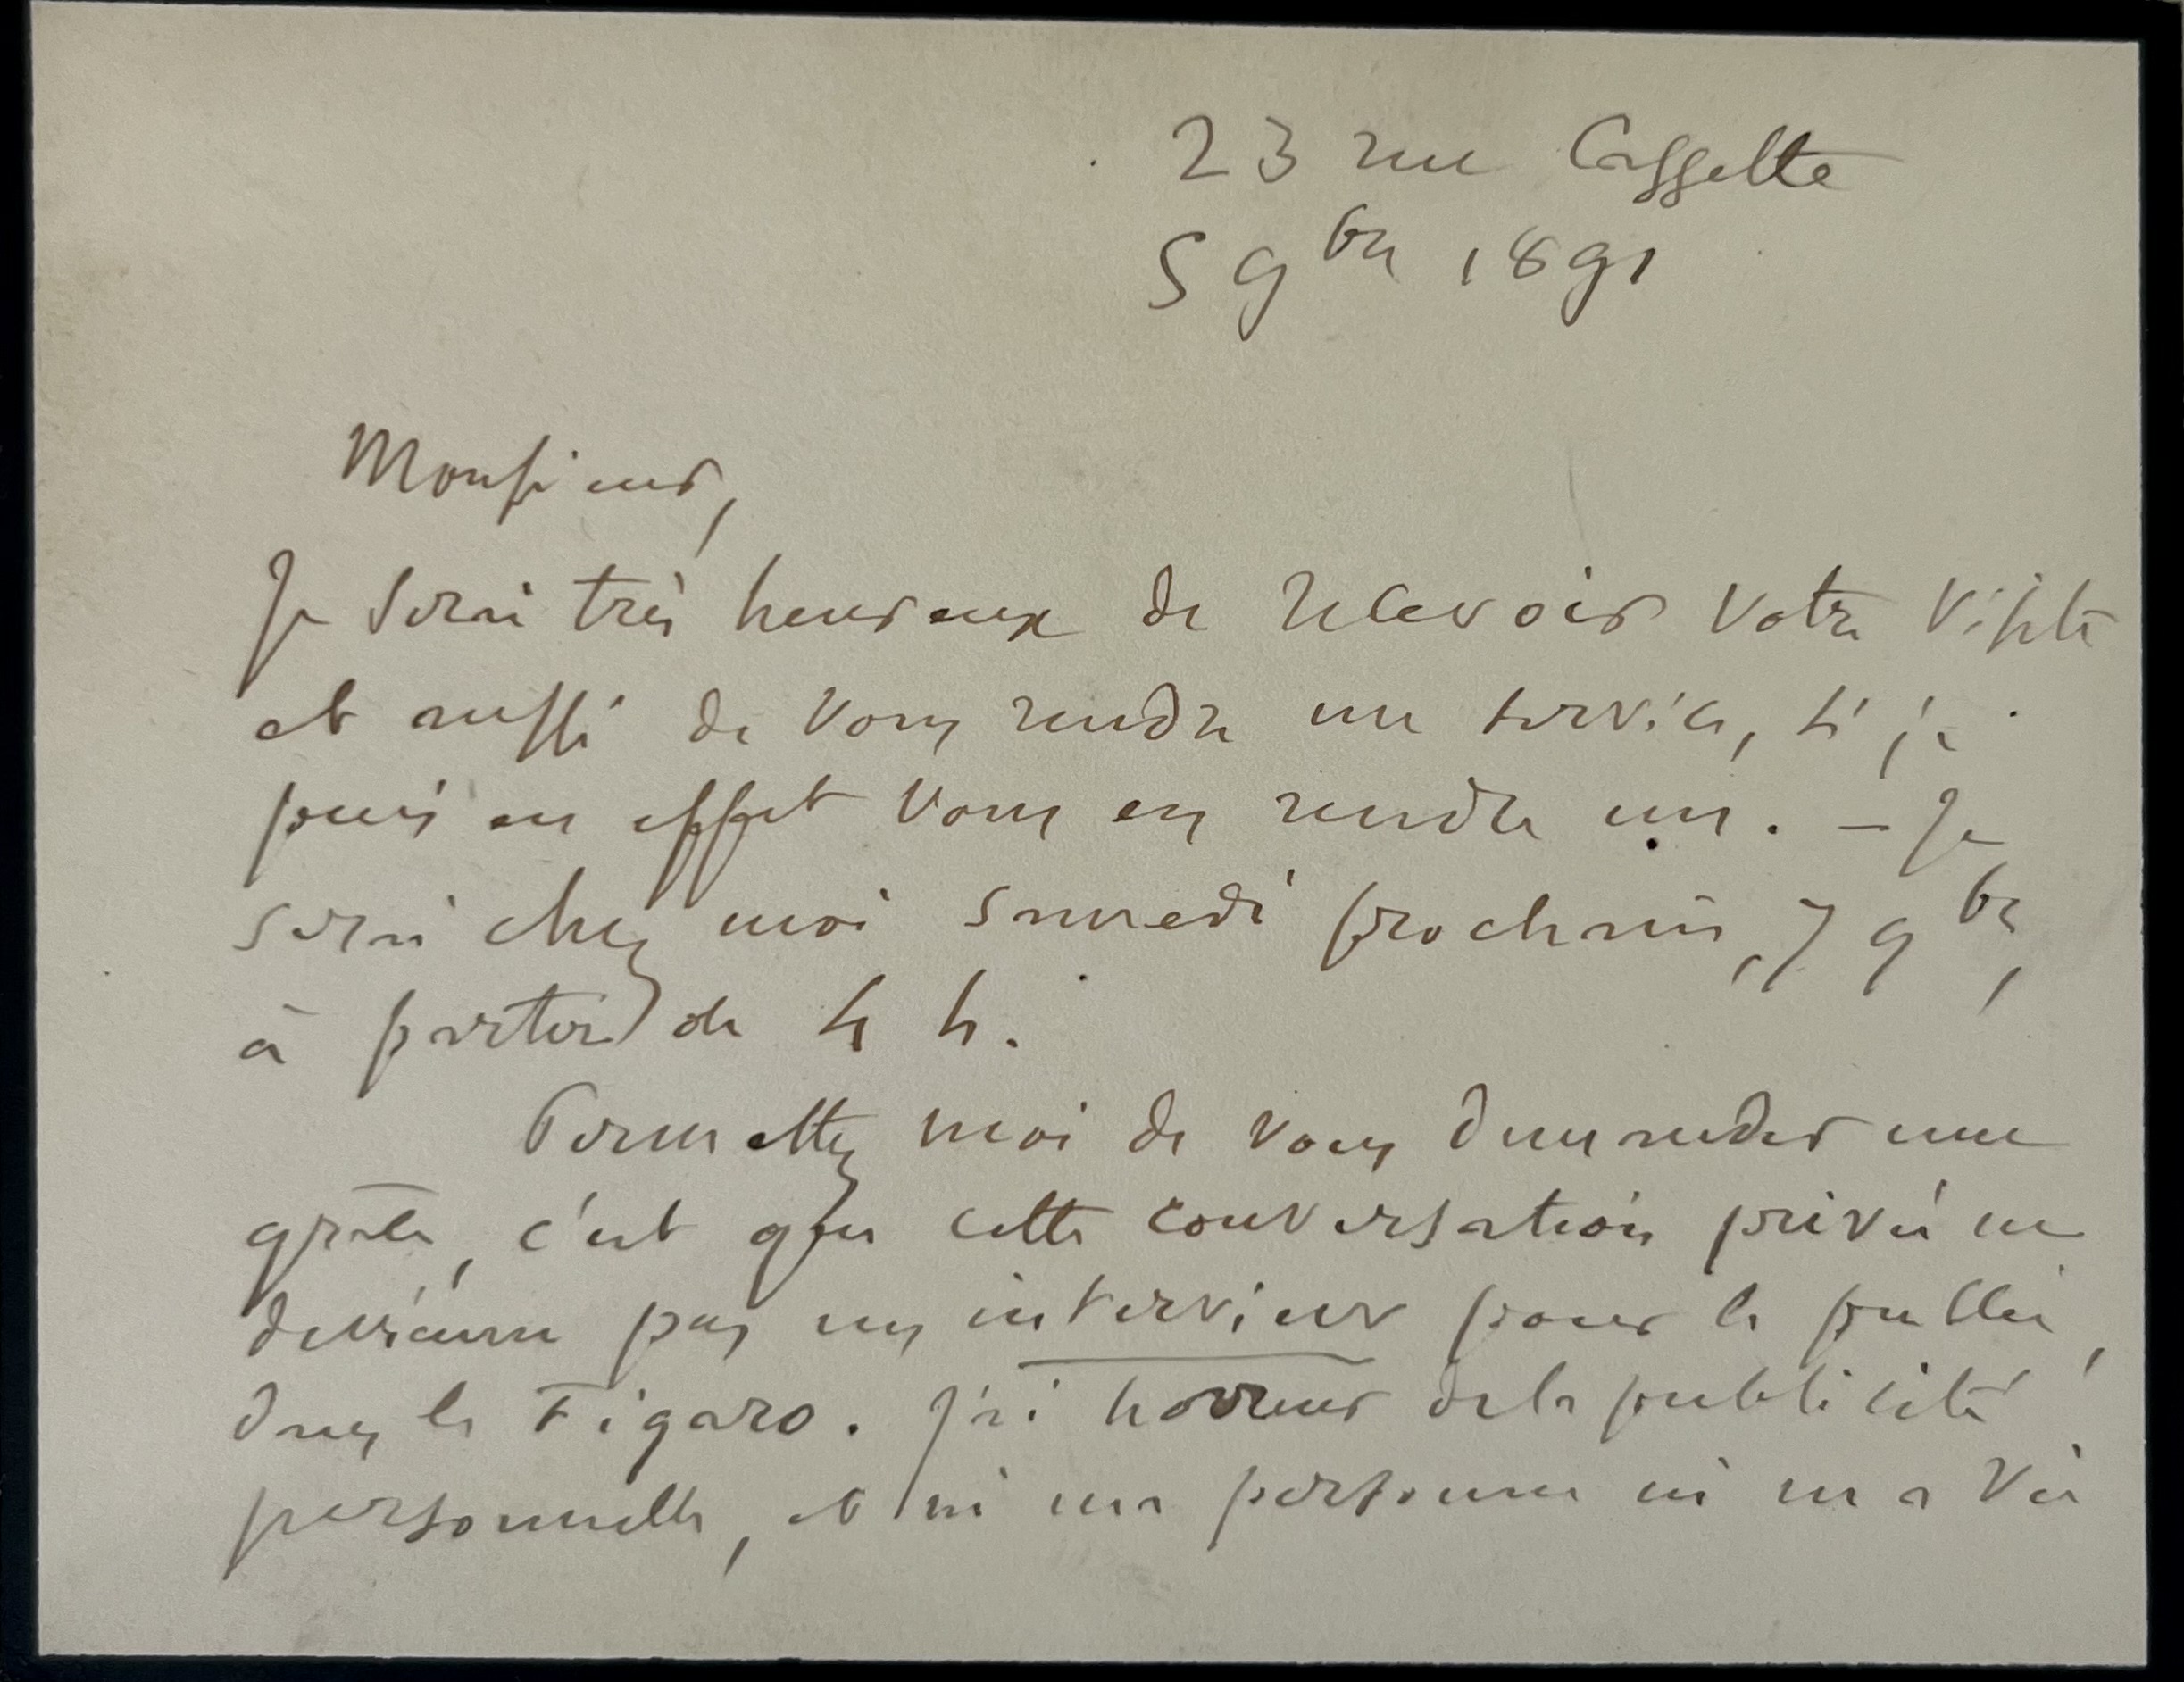 23 rue Cassette
5 9bre 1891
Monsieur,
Je serai très heureux de recevoir votre visite
et aussi de vous rendre un service, si je
puis en effet vous en rendre un. — Je
serai chez moi samedi prochain, 7 9bre,
à partir de 4 h.
Permettez moi de vous demander une
grâce, c'est que cette conversation privée ne
devienne pas un interview pour le public,
dans le Figaro. J'ai horreur de la publicité
personnelle, et ni ma personne ni ma vie